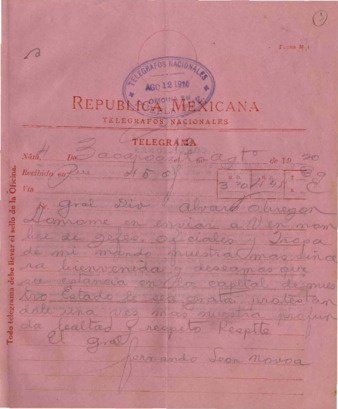 TELEGRAFOS NACIONALES
AGO 12 1920
REPUBLICA MEXICANA
TELEGRAFOS NACIONALES
TELEGRAMA
Núm. 4 De Zacapoaxtla Agto de 1920
Recibido en
Vía
Gral Div Alvaro Obregon
Honrome en enviar a Ud en nom
bre de Jefes, Oficiales y Tropa
de mi mando nuestra mas since
ra bienvenida y deseamos que
su estancia en la capital de nues
tro Estado le sea grata protestan
dole una vez mas nuestra profun
da lealtad y respeto Respte
El Gral
Fernando Leon Novoa
Todo telegrama debe llevar el sello de la Oficina.